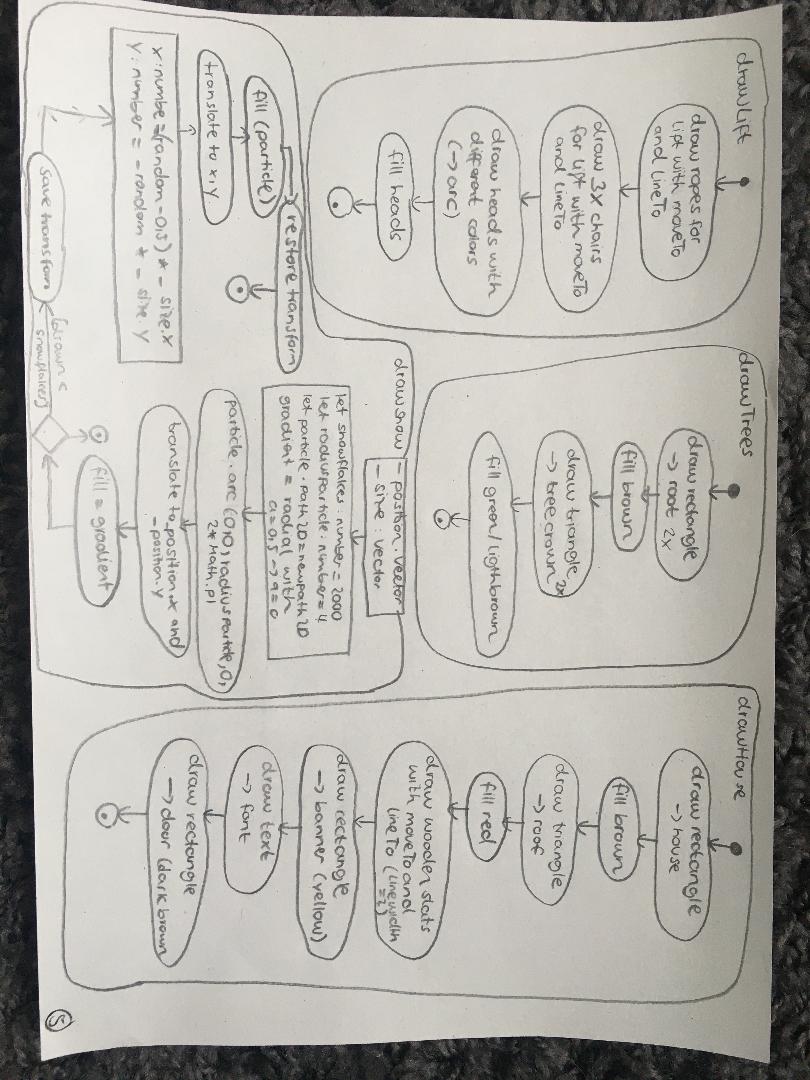 drawLift
draw ropes for
lift with moveTo
and lineTo
draw 3x chairs
for lift with moveTo
and lineTo
draw heads with
different colors
(→ arc)
fill heads
drawTrees
draw rectangle
→ root 2x
fill brown
draw triangle
→ tree crown 2x
fill green/ligthbrown
drawHouse
draw rectangle
→ house
fill brown
draw triangle
→ roof
fill red
draw wooden slats
with moveTo and
lineTo (linewidth
=2)
draw rectangle
→ banner (yellow)
draw text
→ font
draw rectangle
→ door (dark brown
drawsnow
- position.vector
- size : vector
let snowflakes : number = 2000
let radiusparticle : number = 4
let particle . path2D = newpath2D
gradient = radial with
a=0,5 → a=0
particle.arc (0,0, radiusparticle, 0,
2* Math.PI
translate to _position.x and
_position.y
fill = gradient
[drawn <
snowflakes]
save transform
x:numbe=(random -0,5) * _ size.x
y: number = -random * _ size.y
translate to x,y.
fill (particle)
restore transform
5